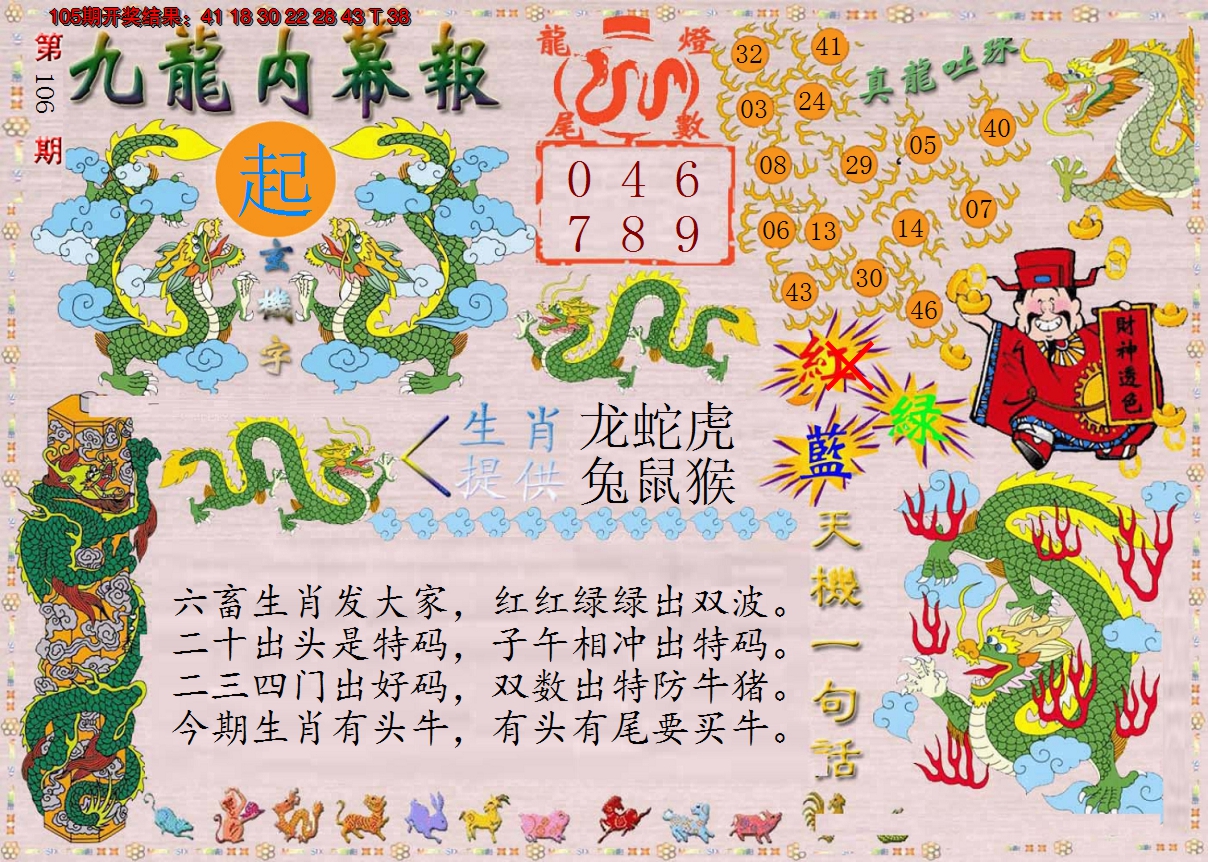 105期开奖结果：41 18 30 22 28 43 T 38
第106期
九龍内幕報
起
玄機字
龍燈
尾數
0 4 6
7 8 9
真龍吐珠
32 41
03 24
08 29 05 40
06 13 14 07
43 30 46
財神透色
紅
綠
藍
生肖提供
龙蛇虎
兔鼠猴
六畜生肖发大家，红红绿绿出双波。
二十出头是特码，子午相冲出特码。
二三四门出好码，双数出特防牛猪。
今期生肖有头牛，有头有尾要买牛。
天機一句话